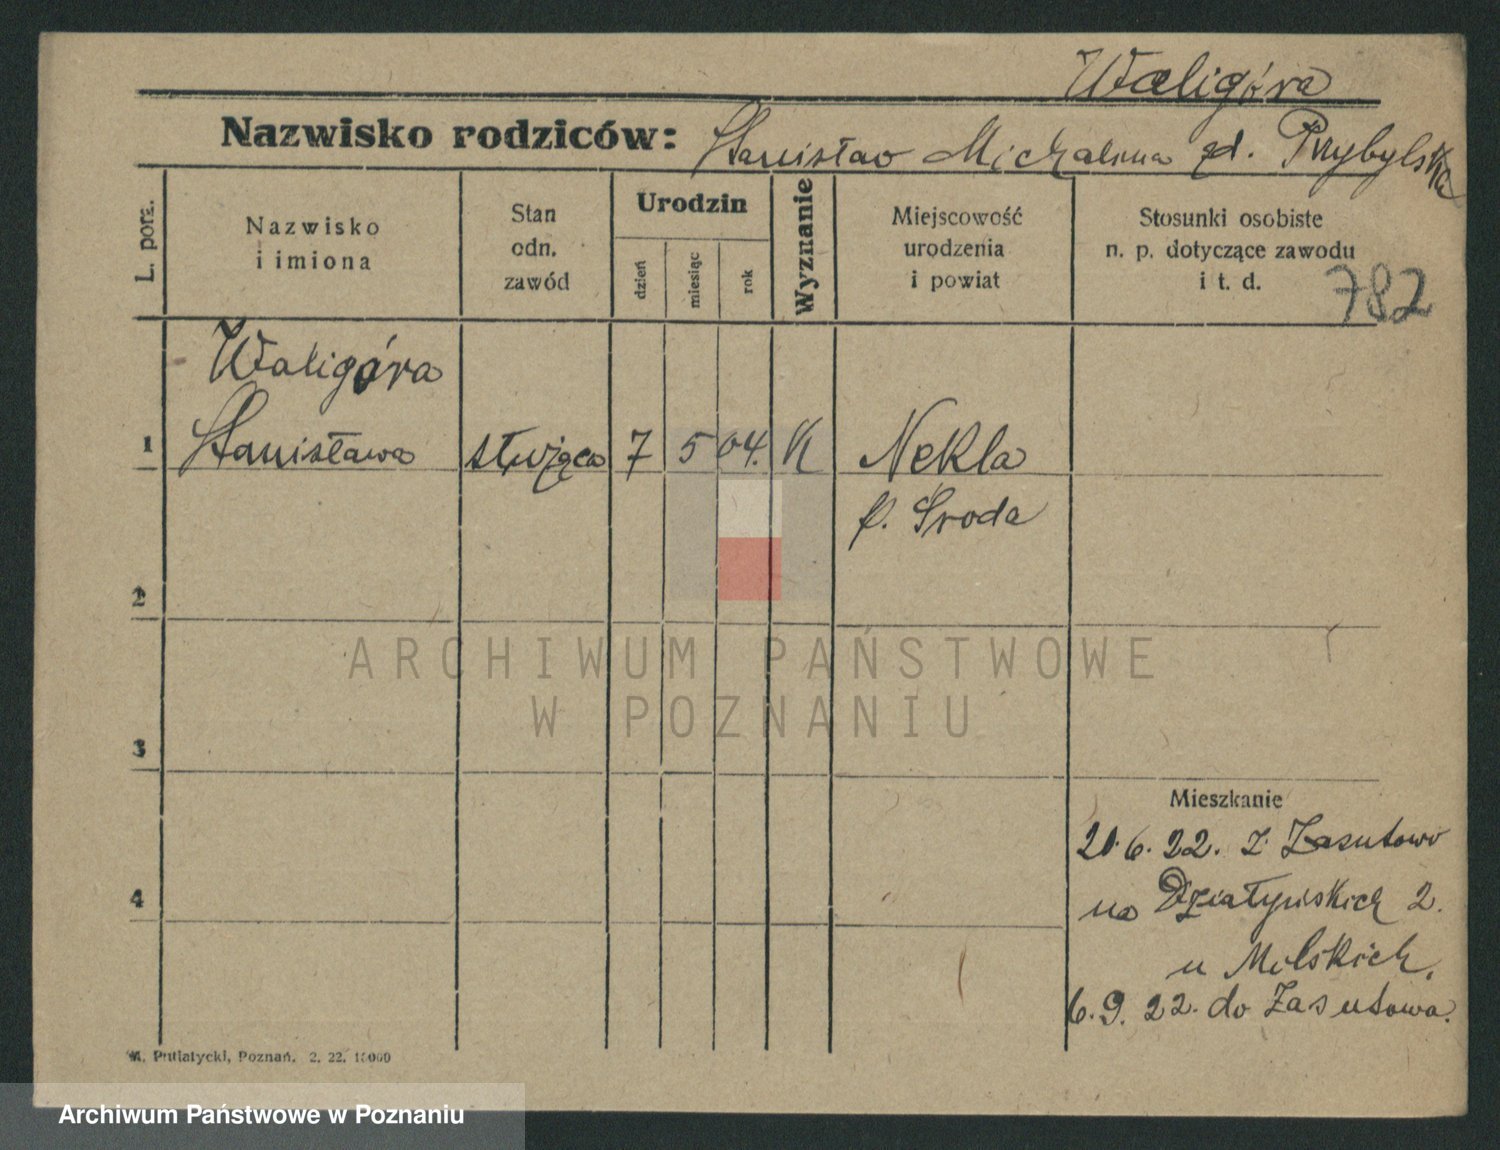 Waligóra
Nazwisko rodziców: Stanisław Michalina zd. Przybylska
L. porz.
Nazwisko
i imiona
Stan
odn.
zawód
Urodzin
dzień
miesiąc
rok
Wyznanie
Miejscowość
urodzenia
i powiat
Stosunki osobiste
n. p. dotyczące zawodu
i t. d.
782
Waligóra
1 Stanisława służąca 7 5 04. K Nekla
p. Środa
2
ARCHIWUM PAŃSTWOWE
W POZNANIU
3
Mieszkanie
20.6.22. z Zasutowo
4
na Działyńskich 2.
u Milskich.
6.9.22. do Zasutowa.
M. Putiatycki, Poznań. 2. 22. 15000
Archiwum Państwowe w Poznaniu